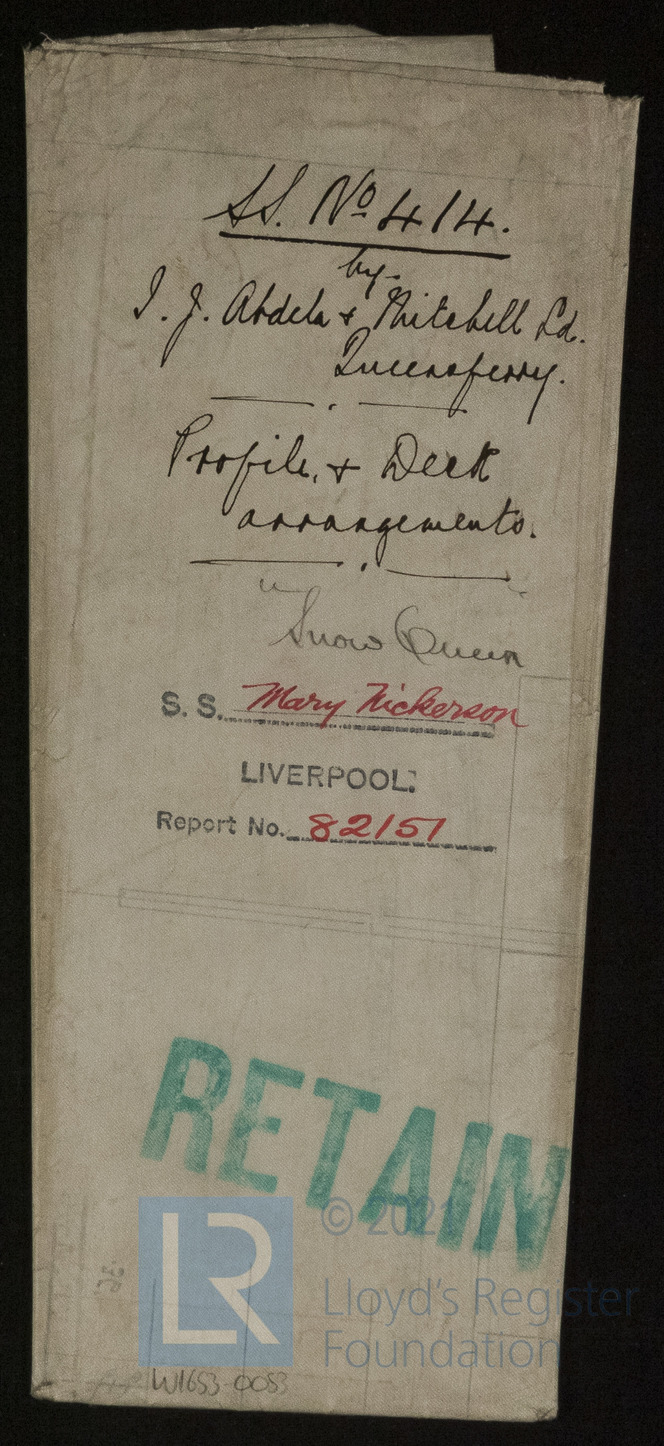 SS. No 414.
by
I. J. Abdela & Mitchell Ld.
Queensferry.
Profile, & Deck
arrangements.
"Snow Queen"
S. S. Mary Nickerson
LIVERPOOL.
Report No. 82151
RETAIN
LR
© 2021
Lloyd's Register
Foundation
W1653-0053